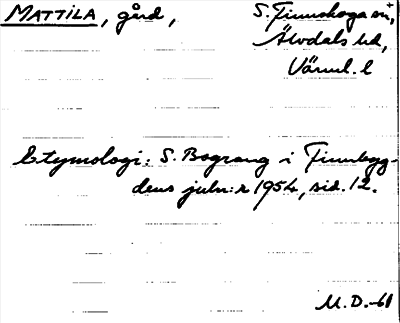 MATTILA, gård, S. Finnskoga sn,
Älvdals hd,
Värml. l
Etymologi: S. Bograng i Finnbyg-
dens juln:r 1954, sid. 12.
M.D.-61